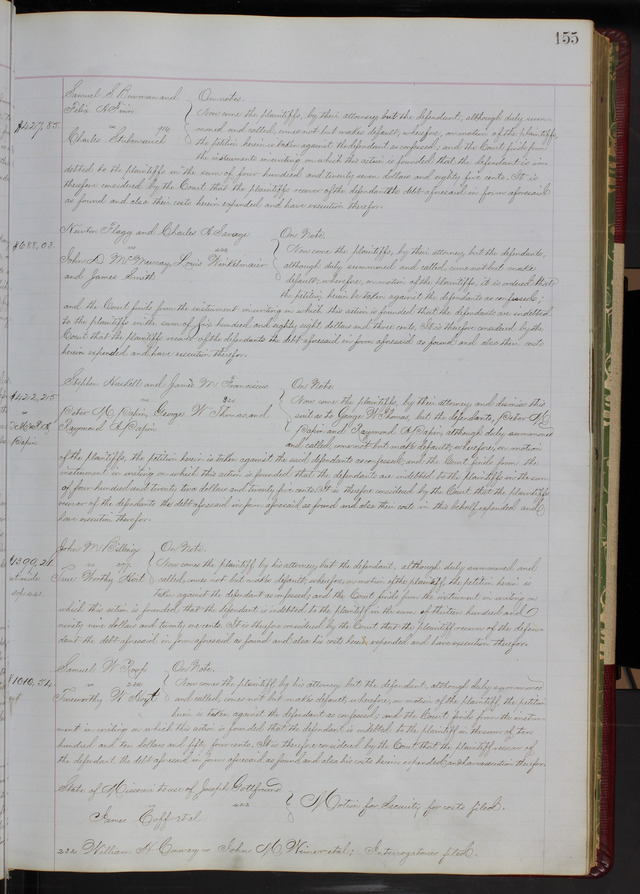 155
Samuel S Bowman and } On notes.
Felix A
$427,85. Now come the plaintiffs, by their attorney but the defendant, although duly sum-
Charles moned and called, comes not but makes default; wherefore, on motion of the plaintiffs,
the petition herein is taken against the defendant as confessed; and the Court finds from
the instrument in writing on which this action is founded that the defendant is in-
debted to the plaintiffs in the sum of four hundred and twenty seven dollars and eighty five cents. It is
therefore considered by the Court that the plaintiffs recover of the defendant the debt aforesaid in form aforesaid
as found and also their costs herein expended and have execution therefor.
Newton Flagg and Charles A Savage On Note.
vs
$688,03. John D. McMurray, Louis Winkelmaier } Now come the plaintiffs, by their attorney but the defendants,
and James Smith although duly summoned and called, come not but make
default; wherefore, on motion of the plaintiffs, it is ordered that
the petition herein be taken against the defendants as confessed;
and the Court finds from the instrument in writing on which this action is founded that the defendants are indebted
to the plaintiffs in the sum of six hundred and eighty eight dollars and three cents. It is therefore considered by the
Court that the plaintiffs recover of the defendants the debt aforesaid in form aforesaid as found and also their costs
herein expended and have execution therefor.
Stephen Haskell and James W. Franciscus On Note
$422,25 vs Now come the plaintiffs, by their attorney and dismiss this
Peter M Papin, George W Thomas, and } suit as to George W. Thomas, but the defendants, Peter M
Raymond A Papin Papin and Raymond A Papin, although duly summoned
Papin and called, come not but make default; wherefore, on motion
of the plaintiffs, the petition herein is taken against the said defendants as confessed; and the Court finds from the
instrument in writing on which this action is founded that the defendants are indebted to the plaintiffs in the sum
of four hundred and twenty two dollars and twenty five cents. It is therefore considered by the Court that the plaintiffs
recover of the defendants the debt aforesaid in form aforesaid as found and also their costs in this behalf expended and
have execution therefor.
John M. Billings } On Note.
$1399,21. vs Now comes the plaintiff by his attorney, but the defendant, although duly summoned and
True Worthy Hoit called, comes not but makes default; wherefore, on motion of the plaintiff, the petition herein is
taken against the defendant as confessed; and the Court finds from the instrument in writing on
which this action is founded, that the defendant is indebted to the plaintiff in the sum of thirteen hundred and
ninety nine dollars and twenty one cents. It is therefore considered by the Court that the plaintiff recover of the defen-
dant the debt aforesaid in form aforesaid as found and also his costs herein expended and have execution therefor.
Samuel W } On Note.
$1010,54. vs Now comes the plaintiff by his attorney but the defendant, although duly summoned
Trueworthy W Hoyt and called, comes not but makes default; wherefore, on motion of the plaintiff, the petition
herein is taken against the defendant as confessed; and the Court finds from the instru-
ment in writing on which this action is founded that the defendant is indebted to the plaintiff in the sum of ten
hundred and ten dollars and fifty four cents. It is therefore considered by the Court that the plaintiff recover of
the defendant the debt aforesaid in form aforesaid as found and also his costs herein expended and have execution therefor.
State of Missouri to use of Joseph Gottfriend
vs } Motion for Security for costs filed.
James Taff et al.
222 William H Conway vs John M Wimer et al; Interrogatories filed.